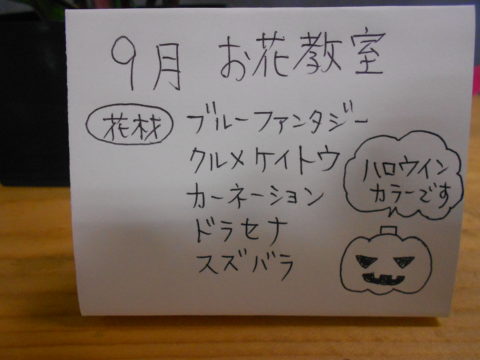 9月 お花教室
花材
ブルーファンタジー
クルメケイトウ
カーネーション
ドラセナ
スズバラ
ハロウイン
カラーです